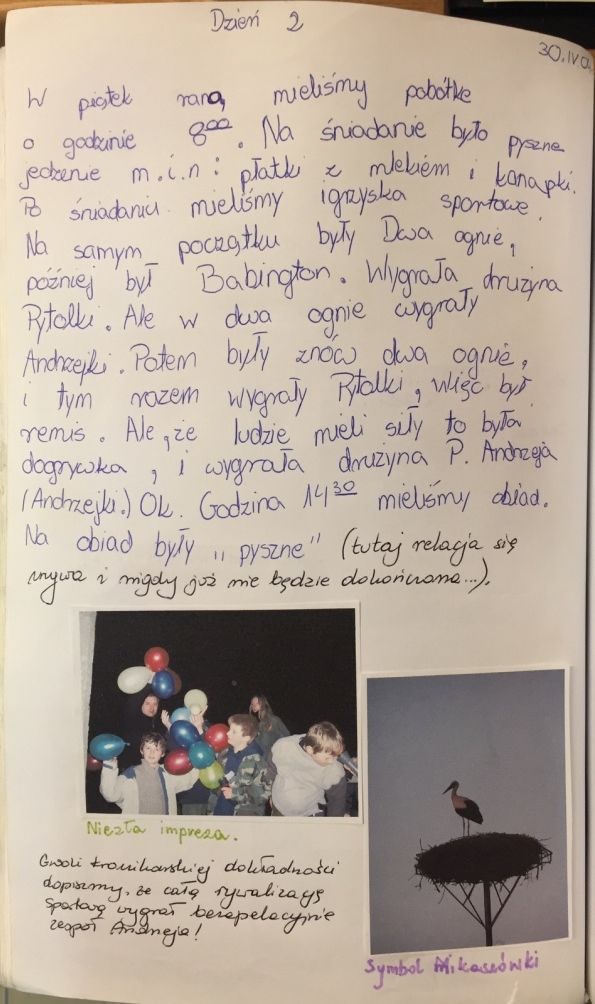 Dzień 2
30.IV.04
W piątek raną mieliśmy pobótkę
o godzinie 8⁰⁰. Na śniadanie było pyszne
jedzenie m.i.n: płatki z mlekiem i kanapki.
Po śniadaniu mieliśmy igrzyska sportowe.
Na samym początku były Dwa ognie,
później był Babington. Wygrała drużyna
Rytolki. Ale w dwa ognie wygrały
Andrzejki. Potem były znów dwa ognie,
i tym razem wygrały Rytolki, więc był
remis. Ale, że ludzie mieli siły to była
dogrywka, i wygrała drużyna P. Andrzeja
(Andrzejki.) Ok. Godzina 14³⁰ mieliśmy obiad.
Na obiad były „pyszne” (tutaj relacja się
urywa i nigdy już nie będzie dokończona...).
Niezła impreza.
Gwoli kronikarskiej dokładności
dopiszmy, że całą rywalizację
sportową wygrał bezapelacyjnie
zespół Andrzeja!
Symbol Mikaszówki